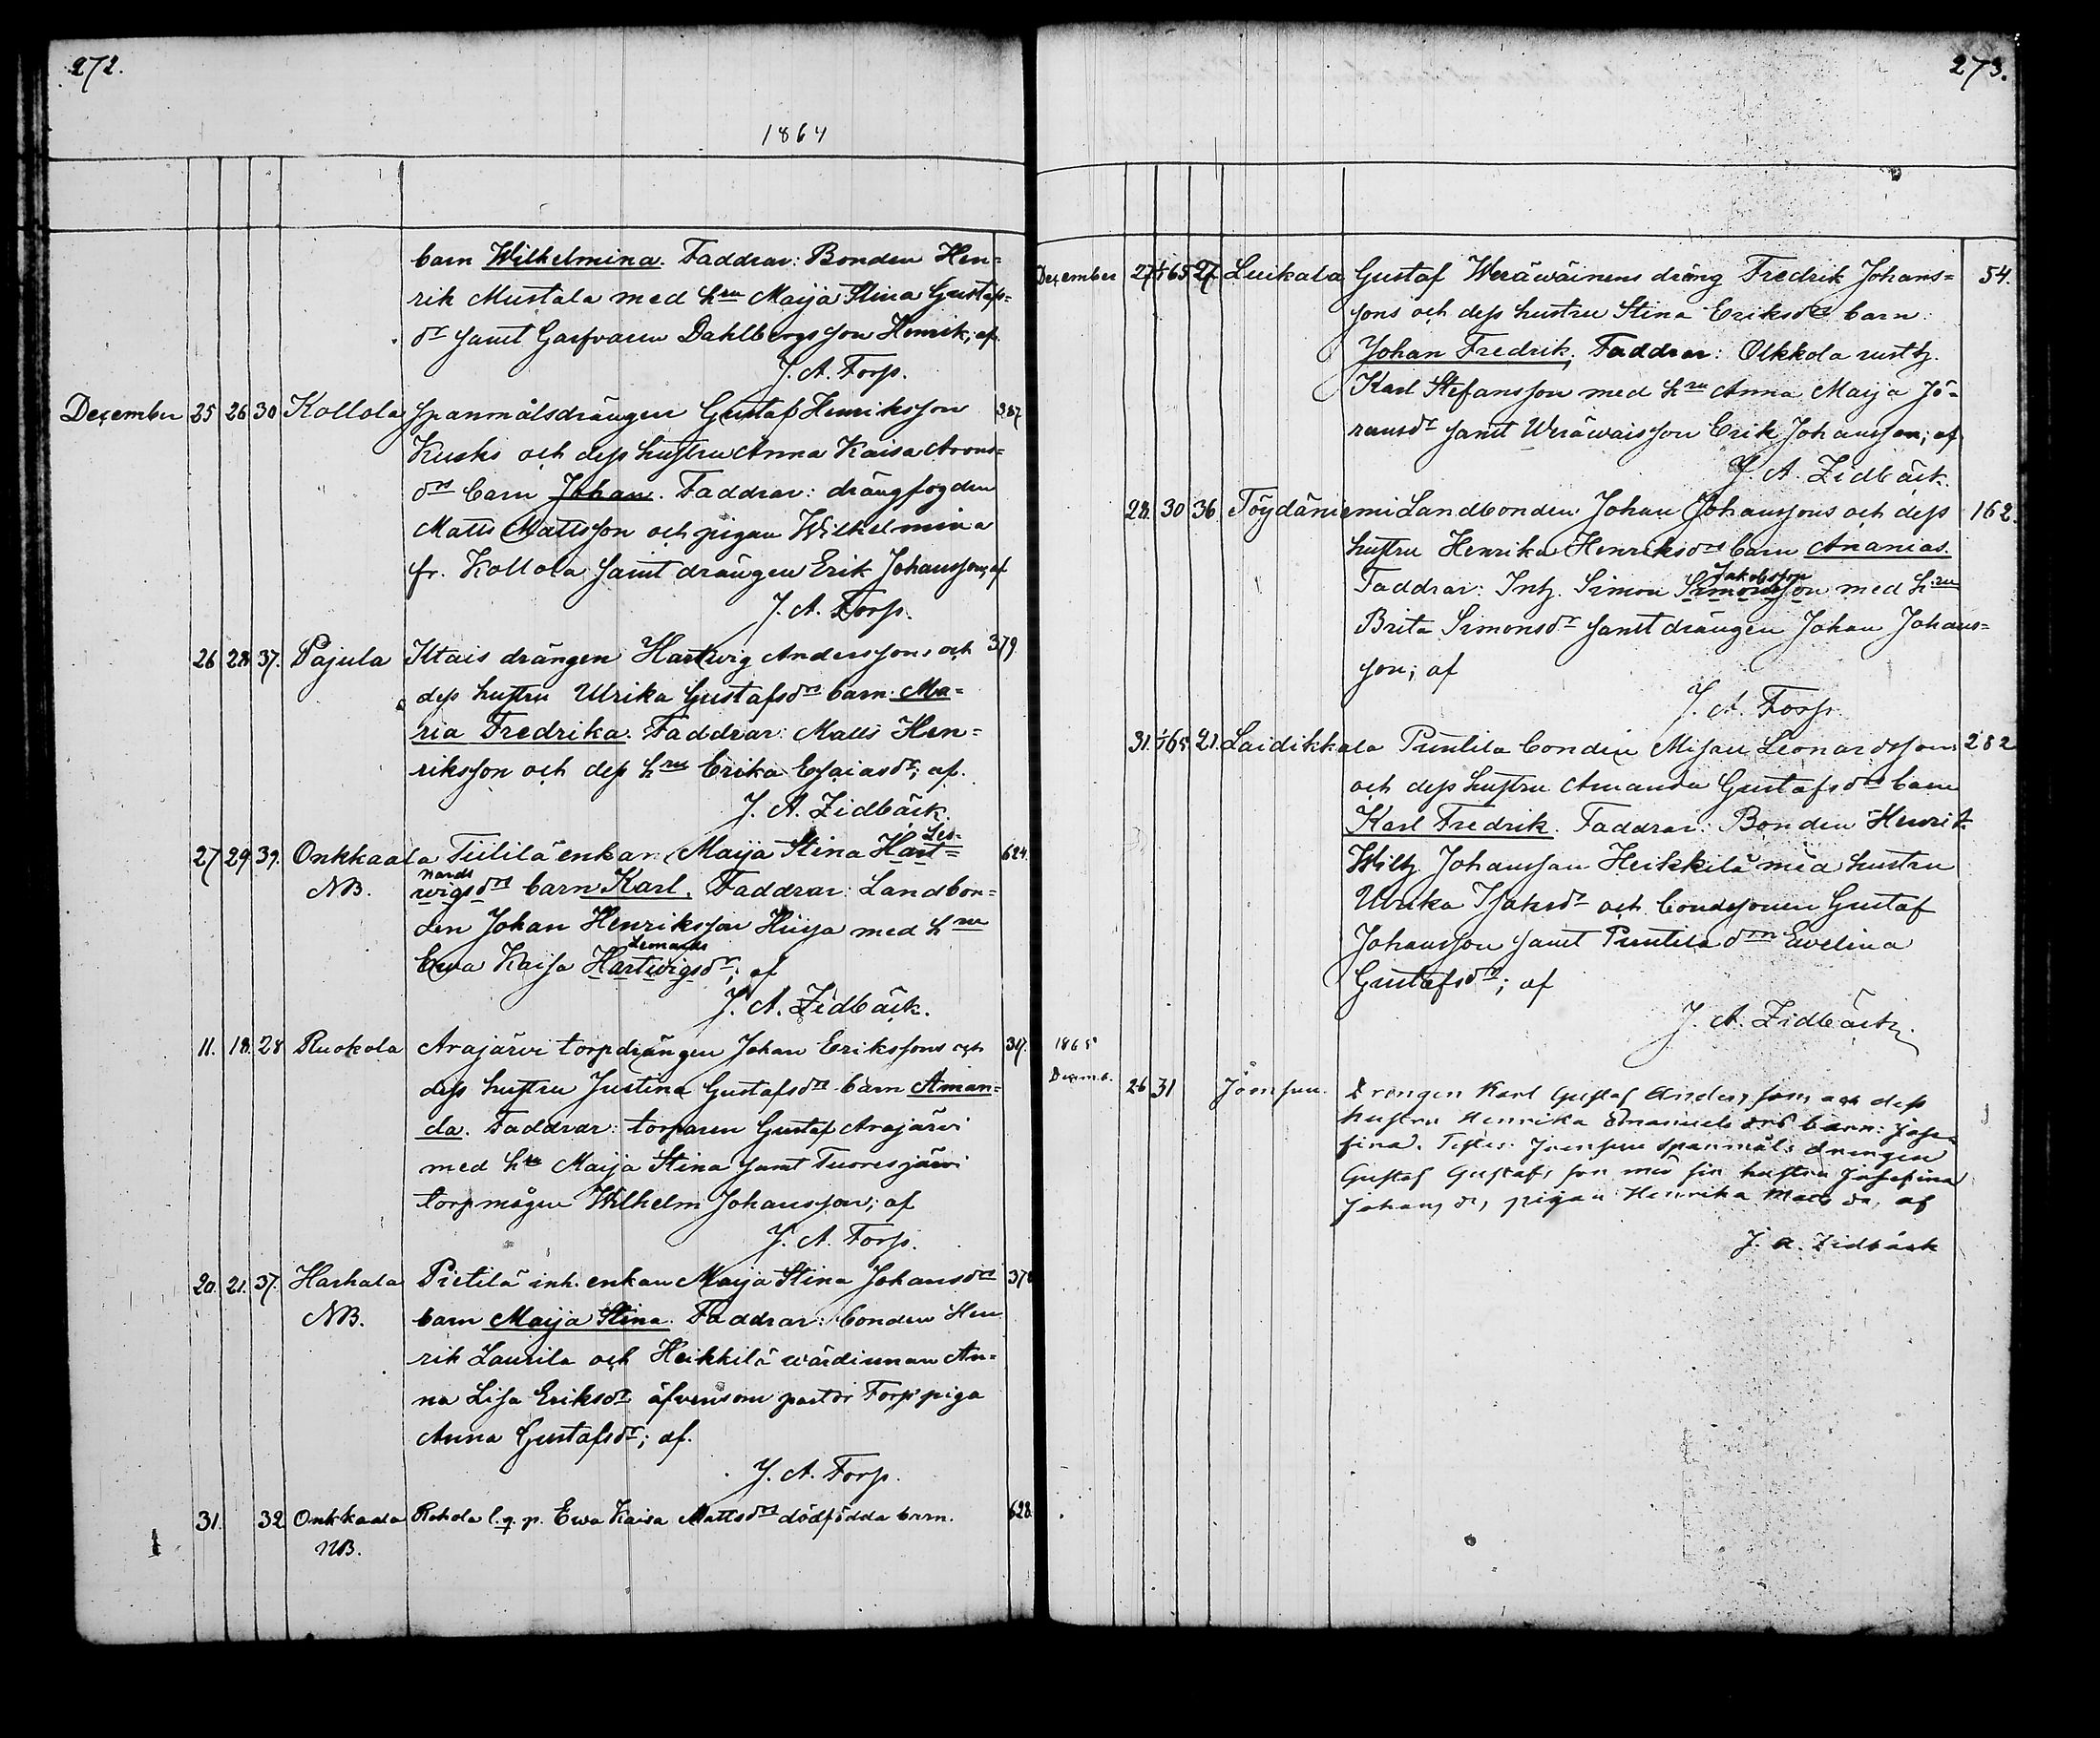 272.
1864
barn Wilhelmina. Faddrar: Bonden Hen=
rik Mustala med hru Maija Stina Gustafs=
dr samt Garfvaren Dahlbergs son Henrik; af
J. A. Forsp.
December 25 26 30 Kollola Spanmålsdrängen Gustaf Henriksson 387
Kusks och dess hustru Anna Kaisa Arons=
drs barn Johan. Faddrar: drängfogden
Matts Mattsson och pigan Wilhelmina
fr. Kollola samt drängen Erik Johansson; af
J. A. Forsp.
26 28 37. Pajula Iltais drängen Hartwig Anderssons och 379
dess hustru Ulrika Gustafsdrs barn Ma=
ria Fredrika. Faddrar: Matts Hen=
riksson och dess hru Erika Esaiasdr; af.
J. A. Zidbäck.
Leo=
27 29 39. Onkkaala Tiililä enkan Maija Stina Hart= 624.
nards
NB. wigsdrs barn Karl. Faddrar: Landbon=
den Johan Henriksson Hiija med hru
Leonards
Ewa Kaisa Hartwigsdr; af
J. A. Zidbäck.
11. 18. 28 Ruokola Arajärvi torpdrängen Johan Erikssons och 317.
dess hustru Justina Gustafsdrs barn Aman=
da. Faddrar: torparen Gustaf Arajärvi
med hru Maija Stina samt Tuoresjärvi
torpmågen Wilhelm Johansson; af
J. A. Forsp.
20. 21. 37. Harhala Pietilä inh. enkan Maija Stina Johansdrs 378
NB. barn Maija Stina. Faddrar: bonden Hen
rik Laurila och Heikkilä wärdinnan An=
na Lisa Eriksdr äfvensom pastor Forsp piga
Anna Gustafsdr; af.
J. A. Forsp.
31. 32 Onkkaala Rehola l. q. p. Ewa Kaisa Mattsdrs dödfödda barn. 628.
NB.
273.
December 27 1/1 65 27 Luikala Gustaf Weräwäinens dräng Fredrik Johans= 54.
sons och dess hustru Stina Eriksdrs barn:
Johan Fredrik; Faddrar: Olkkola rusth.
Karl Stefansson med hru Anna Maija Jö=
ransdr samt Weräwäis son Erik Johansson; af
J. A. Zidbäck.
28. 30 36 Töydäniemi Landbonden Johan Johanssons och dess 162.
hustru Henrika Henriksdrs barn Ananias.
Jakobsson
Faddrar: Inh. Simon Simonsson med hru
Brita Simonsdr samt drängen Johan Johans=
son; af
J. A. Forsp.
31. 1/1 65 21. Laidikkala Puntila bonden Misael Leonardssons 282
och dess hustru Amanda Gustafsdrs barn
Karl Fredrik. Faddrar: Bonden Henrik
Wilh. Johansson Heikkilä med hustru
Ulrika Isaksdr och bondsonen Gustaf
Johansson samt Puntila drn Ewelina
Gustafsdr; af
J. A. Zidbäck.
1865
Decemb. 26 31 Jömsuu. Drengen Karl Gustaf Anderssons och dess
hustru Henrika Emanuels drs barn: Jose=
fina. Testes: Joensuu spanmåls drengen
Gustaf Gustafsson med sin hustru Josefina
Johans dr, pigan Henrika Mats dr, af
J. A. Zidbäck